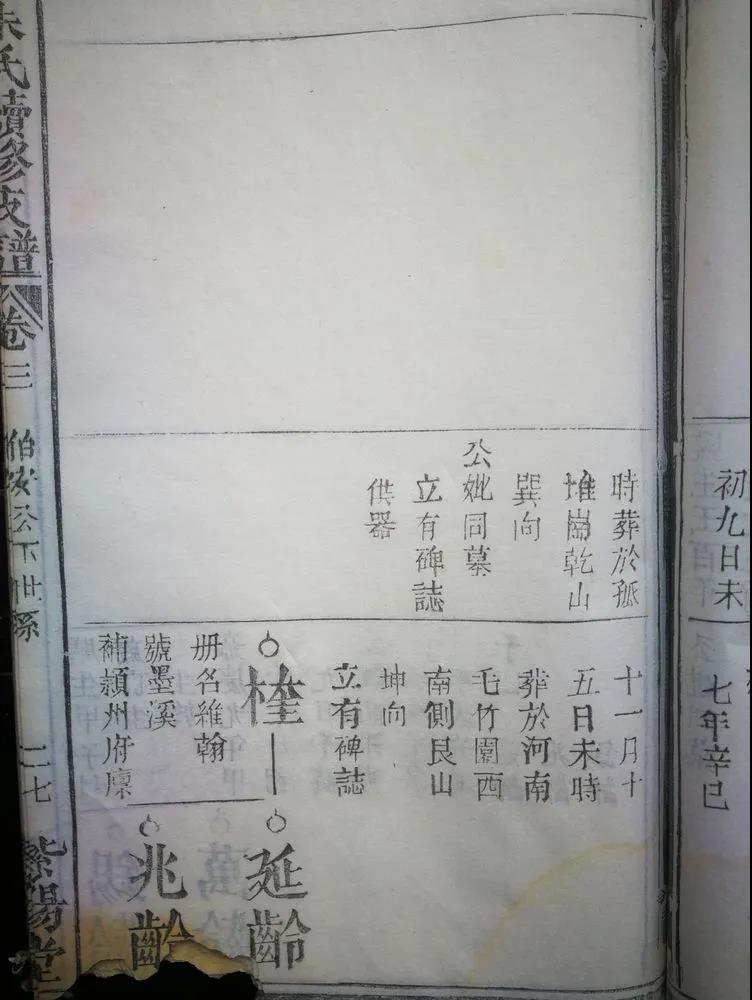 初九日未
七年辛巳
時葬於孤
堆崗乾山
巽向
公妣同墓
立有碑誌
供器
十一月十
五日未時
葬於河南
毛竹園西
南側艮山
坤向
立有碑誌
楏
延齡
册名維翰
號墨溪
補潁州府廩
兆齡
朱氏續修支譜
卷三
伯安公下世系
二七
紫陽堂